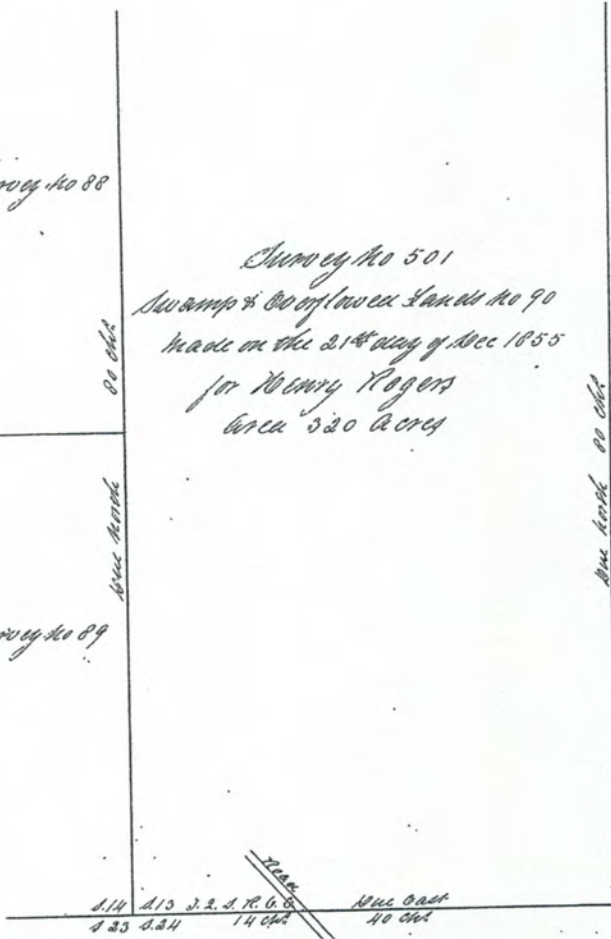 rvey No 88
80 chs
Survey No 501
Swamp & Overflowed Lands No 90
Made on the 21st day of Dec 1855
for Henry Rogers
Area 320 Acres
Due North
Due North 80 chs
rvey No 89
Road
S.14 S.13 T.2.S.R.6.E Due East
S 23 S.24 14 chs 40 chs